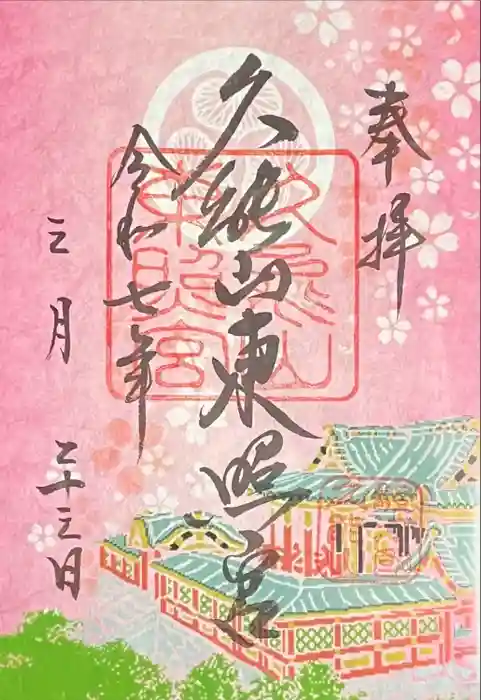 奉拝
久能山東照宮
令和七年
三月
二十三日
久能山
東照宮